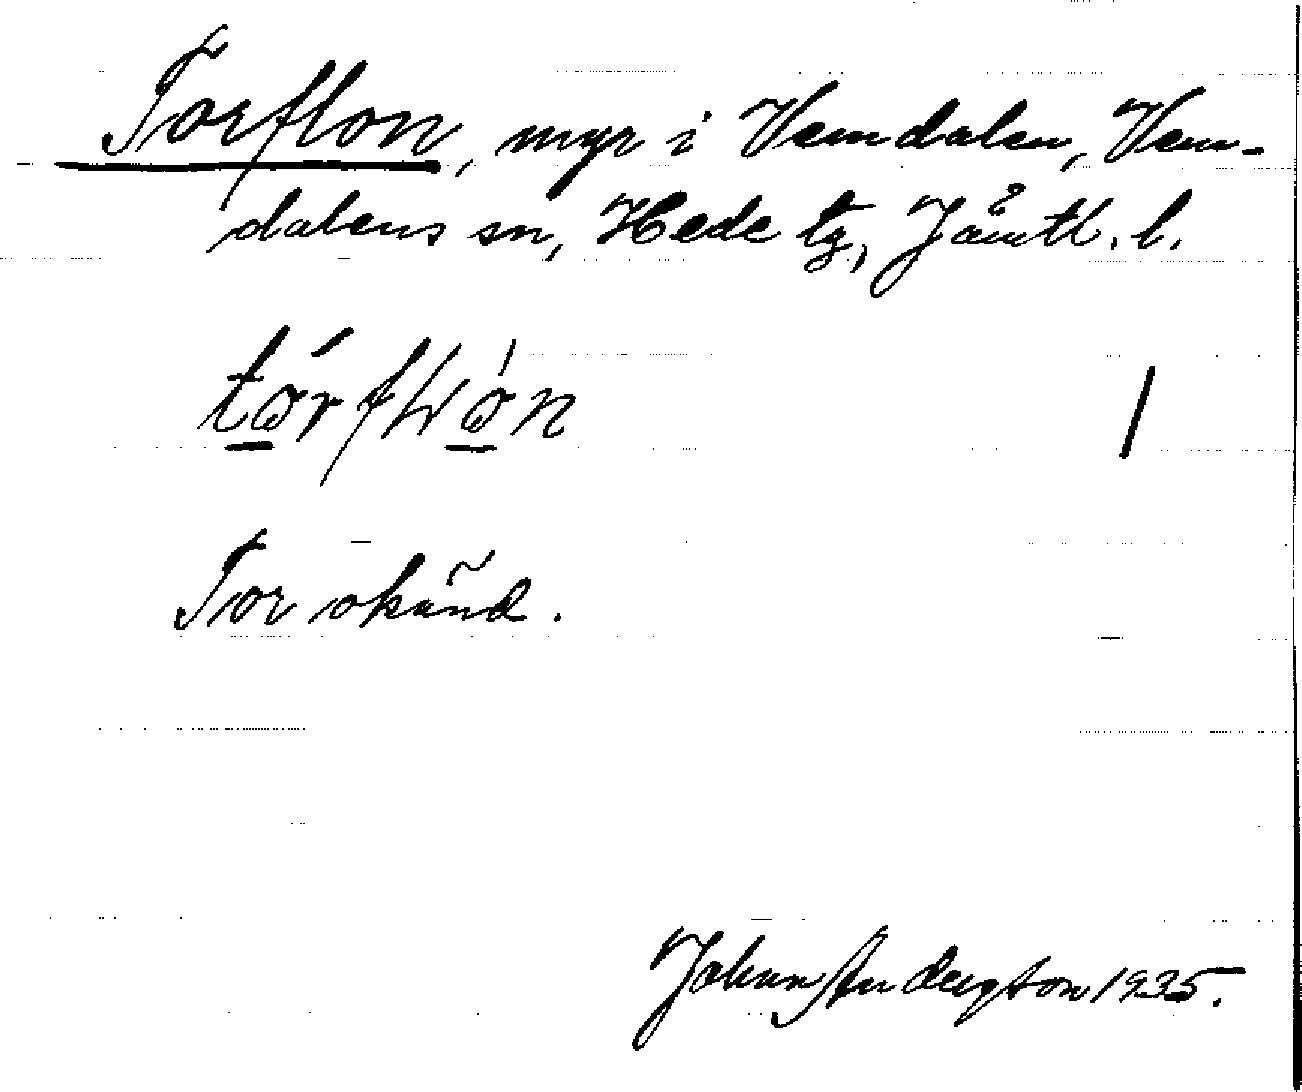 Torflon, myr i Vemdalen, Vem-
dalens sn, Hede tg, Jämtl. l.
Tor okänd.
Johan Anderson 1935.